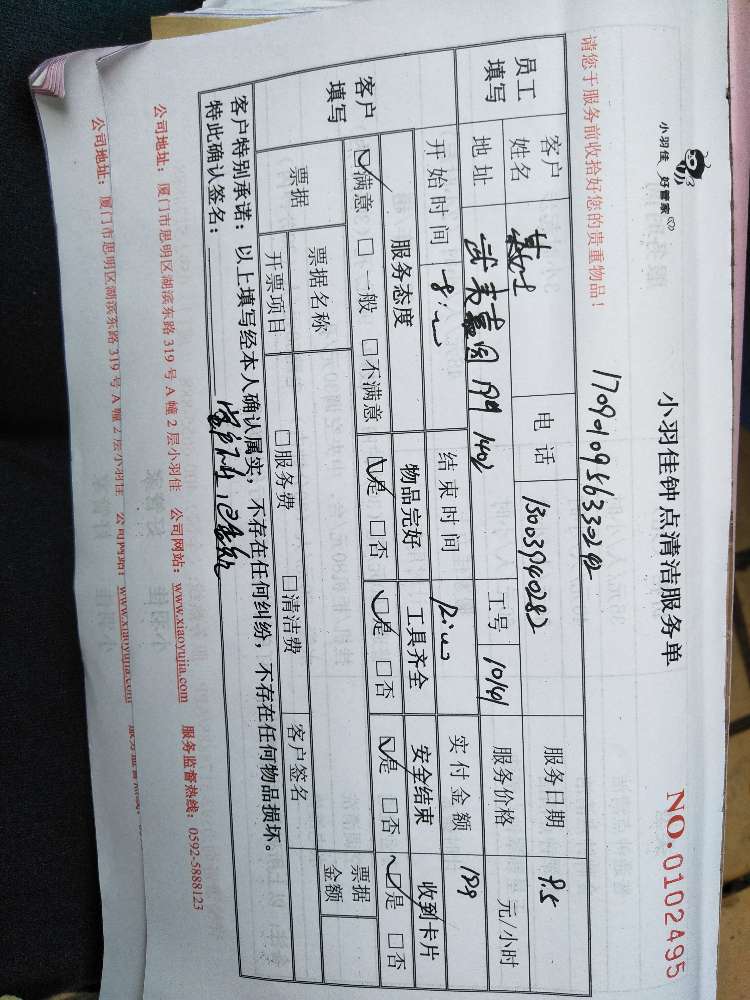 小羽佳 好管家
小羽佳钟点清洁服务单
NO.0102495
请您于服务前收拾好您的贵重物品！
员工填写
客户姓名
电话
13003940282
服务日期
9.5
地址
1402
工号
10141
服务价格
元/小时
开始时间
8:00
结束时间
12:00
实付金额
199
客户填写
服务态度
物品完好
工具齐全
安全结束
收到卡片
☑满意 □一般 □不满意
☑是 □否
☑是 □否
☑是 □否
☑是 □否
票据
票据名称
客户签名
票据金额
开票项目
□服务费 □清洁费
客户特别承诺：以上填写经本人确认属实，不存在任何纠纷，不存在任何物品损坏。
特此确认签名：
公司地址：厦门市思明区湖滨东路319号A幢2层小羽佳 公司网站：www.xiaoyujia.com 服务监督热线：0592-5888123
公司地址：厦门市思明区湖滨东路319号A幢2层小羽佳 公司网站：www.xiaoyujia.com